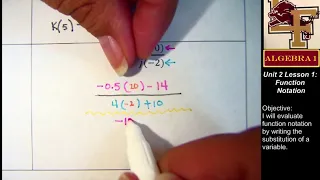 K(5) =
(-2)
-0.5(10) - 14
4(-2) + 10
ALGEBRA 1
Unit 2 Lesson 1:
Function
Notation
Objective:
I will evaluate
function notation
by writing the
substitution of a
variable.